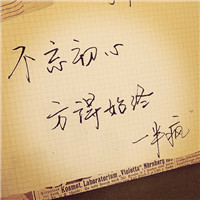 不忘初心
方得始终
一半疯
Kosmol. Laboratorium „Violetta" Nürnberg